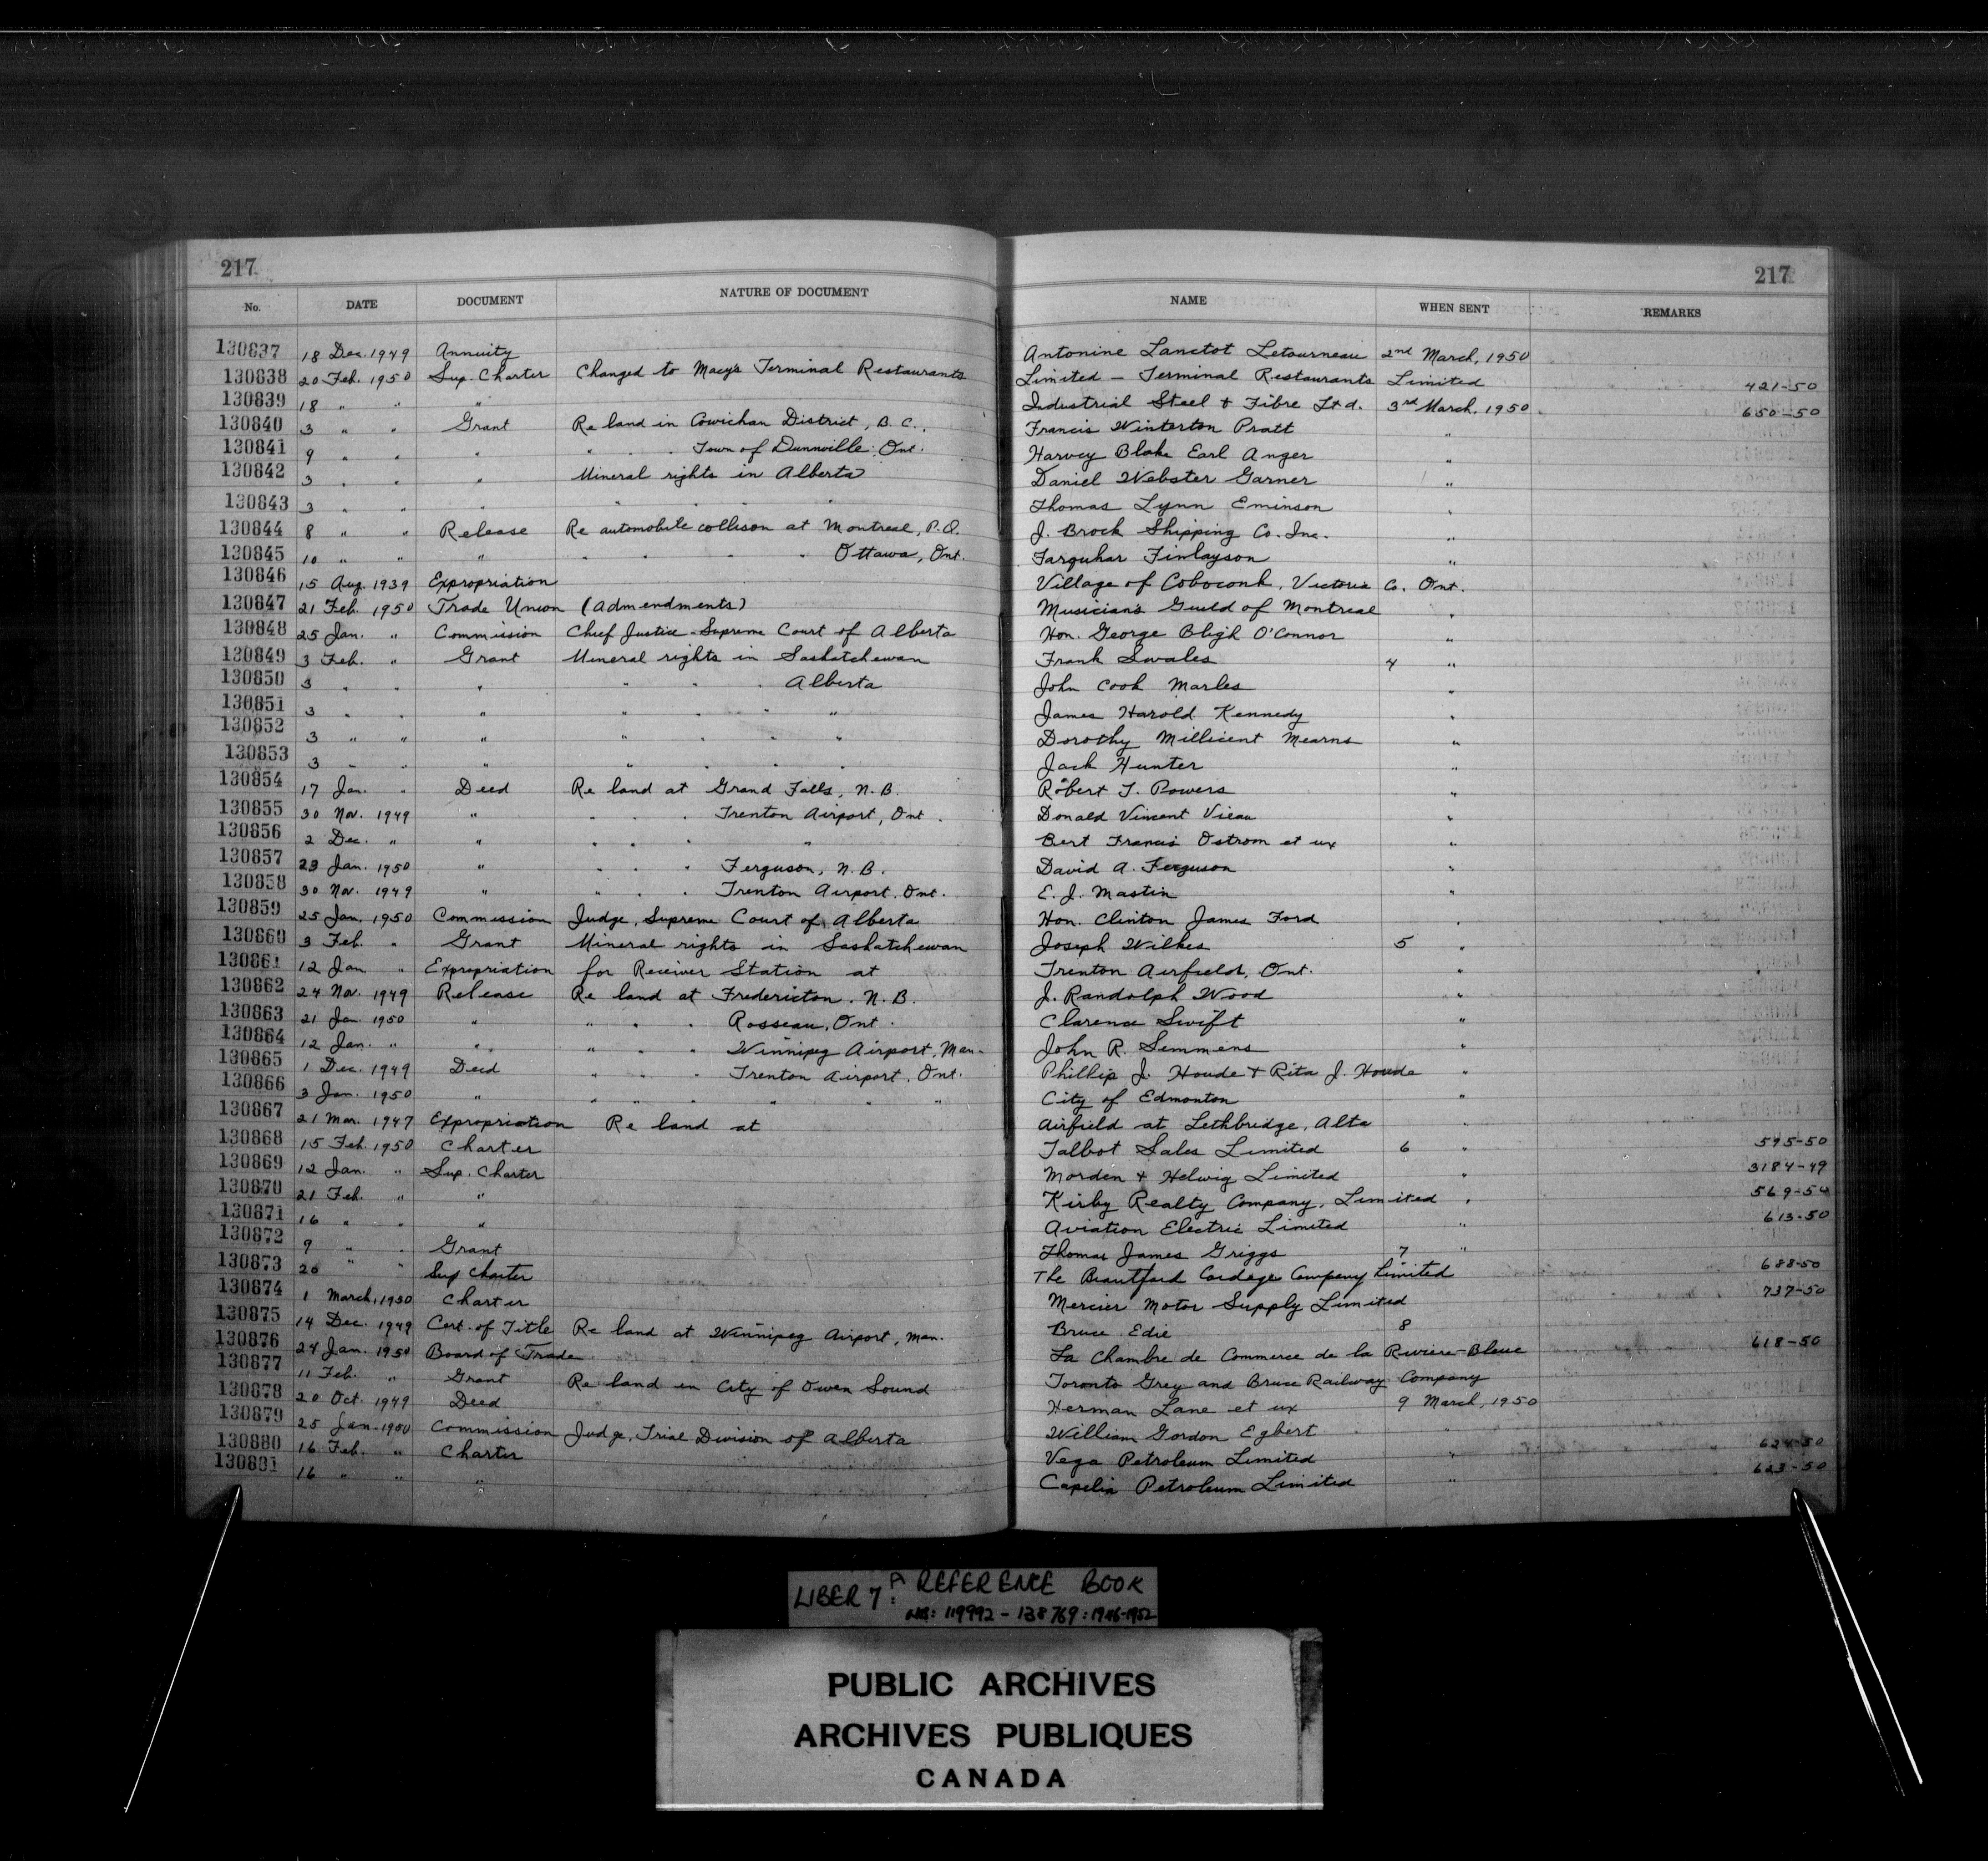 217
217
No. DATE DOCUMENT NATURE OF DOCUMENT NAME WHEN SENT REMARKS
130837 18 Dec. 1949 Annuity Antonine Lanctot Letourneau 2nd March, 1950
130838 20 Feb. 1950 Sup. Charter Changed to Macy's Terminal Restaurants Limited - Terminal Restaurants Limited 421-50
130839 18 " " " Industrial Steel & Fibre Ltd. 3rd March, 1950. 650-50
130840 3 " " Grant Re land in Cowichan District, B.C. Francis Winterton Pratt "
130841 9 " " " " " " Town of Dunnville, Ont. Harvey Blake Earl Anger "
130842 3 " " " Mineral rights in Alberta Daniel Webster Garner "
130843 3 " " " " " " Thomas Lynn Eminson "
130844 8 " " Release Re automobile collison at Montreal, P.Q. J. Brock Shipping Co. Inc. "
130845 10 " " " " " " " Ottawa, Ont. Farquhar Finlayson "
130846 15 Aug. 1939 Expropriation Village of Coboconk, Victoria Co. Ont.
130847 21 Feb. 1950 Trade Union (Admendments) Musician's Guild of Montreal "
130848 25 Jan. " Commission Chief Justice - Supreme Court of Alberta Hon. George Bligh O'Connor "
130849 3 Feb. " Grant Mineral rights in Saskatchewan Frank Swales 4 "
130850 3 " " " " " " Alberta John Cook Marles "
130851 3 " " " " " " " James Harold Kennedy "
130852 3 " " " " " " " Dorothy Millicent Mearns "
130853 3 " " " " " " " Jack Hunter "
130854 17 Jan. " Deed Re land at Grand Falls, N.B. Robert T. Powers "
130855 30 Nov. 1949 " " " " Trenton Airport, Ont. Donald Vincent Vieau "
130856 2 Dec. " " " " " " Bert Francis Ostrom et ux "
130857 23 Jan. 1950 " " " " Ferguson, N.B. David A. Ferguson "
130858 30 Nov. 1949 " " " " Trenton Airport, Ont. E. J. Mastin "
130859 25 Jan. 1950 Commission Judge, Supreme Court of Alberta Hon. Clinton James Ford "
130860 3 Feb. " Grant Mineral rights in Saskatchewan Joseph Wilkes 5 "
130861 12 Jan " Expropriation for Receiver Station at Trenton Airfield, Ont. "
130862 24 Nov. 1949 Release Re land at Fredericton. N.B. J. Randolph Wood "
130863 21 Jan. 1950 " " " " Rosseau, Ont. Clarence Swift "
130864 12 Jan. " " " " " Winnipeg Airport, Man. John R. Semmens "
130865 1 Dec. 1949 Deed " " " Trenton Airport, Ont. Phillip J. Houde & Rita J. Houde "
130866 3 Jan. 1950 " " " " " " " City of Edmonton "
130867 21 Mar. 1947 Expropriation Re land at Airfield at Lethbridge, Alta "
130868 15 Feb. 1950 Charter Talbot Sales Limited 6 " 595-50
130869 12 Jan. " Sup. Charter Morden & Helwig Limited " 3184-49
130870 21 Feb. " " Kirby Realty Company, Limited " 569-50
130871 16 " " " Aviation Electric Limited " 613-50
130872 9 " " Grant Thomas James Griggs 7 "
130873 20 " " Sup Charter The Brantford Cordage Company Limited 688-50
130874 1 March, 1950 Charter Mercier Motor Supply Limited 737-50
130875 14 Dec. 1949 Cert. of Title Re land at Winnipeg Airport, Man. Bruce Edie 8
130876 24 Jan. 1950 Board of Trade La Chambre de Commerce de la Riviere-Bleue 618-50
130877 11 Feb. " Grant Re land in City of Owen Sound Toronto Grey and Bruce Railway Company
130878 20 Oct. 1949 Deed Herman Lane et ux 9 March, 1950
130879 25 Jan. 1950 Commission Judge, Trial Division of Alberta William Gordon Egbert "
130880 16 Feb. " Charter Vega Petroleum Limited " 624-50
130881 16 " " " Capelia Petroleum Limited " 623-50
LIBER 7A: REFERENCE BOOK
NOS: 119992 - 138769: 1946-1952
PUBLIC ARCHIVES
ARCHIVES PUBLIQUES
CANADA